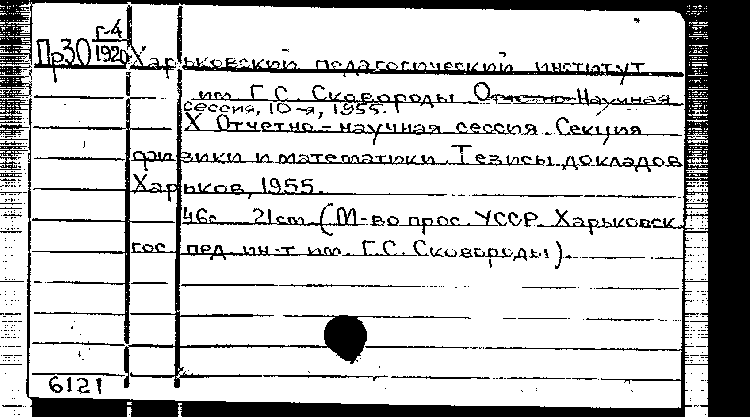 Пр30 Г-4/1920 Харьковский педагогический институт
им. Г.С. Сковороды Отчетно-Научная
сессия, 10-я, 1955.
X Отчетно-научная сессия. Секция
физики и математики. Тезисы докладов
Харьков, 1955.
46с 21cm. (М-во прос. УССР. Харьковск.
гос. пед. ин-т им. Г.С. Сковороды).
6121